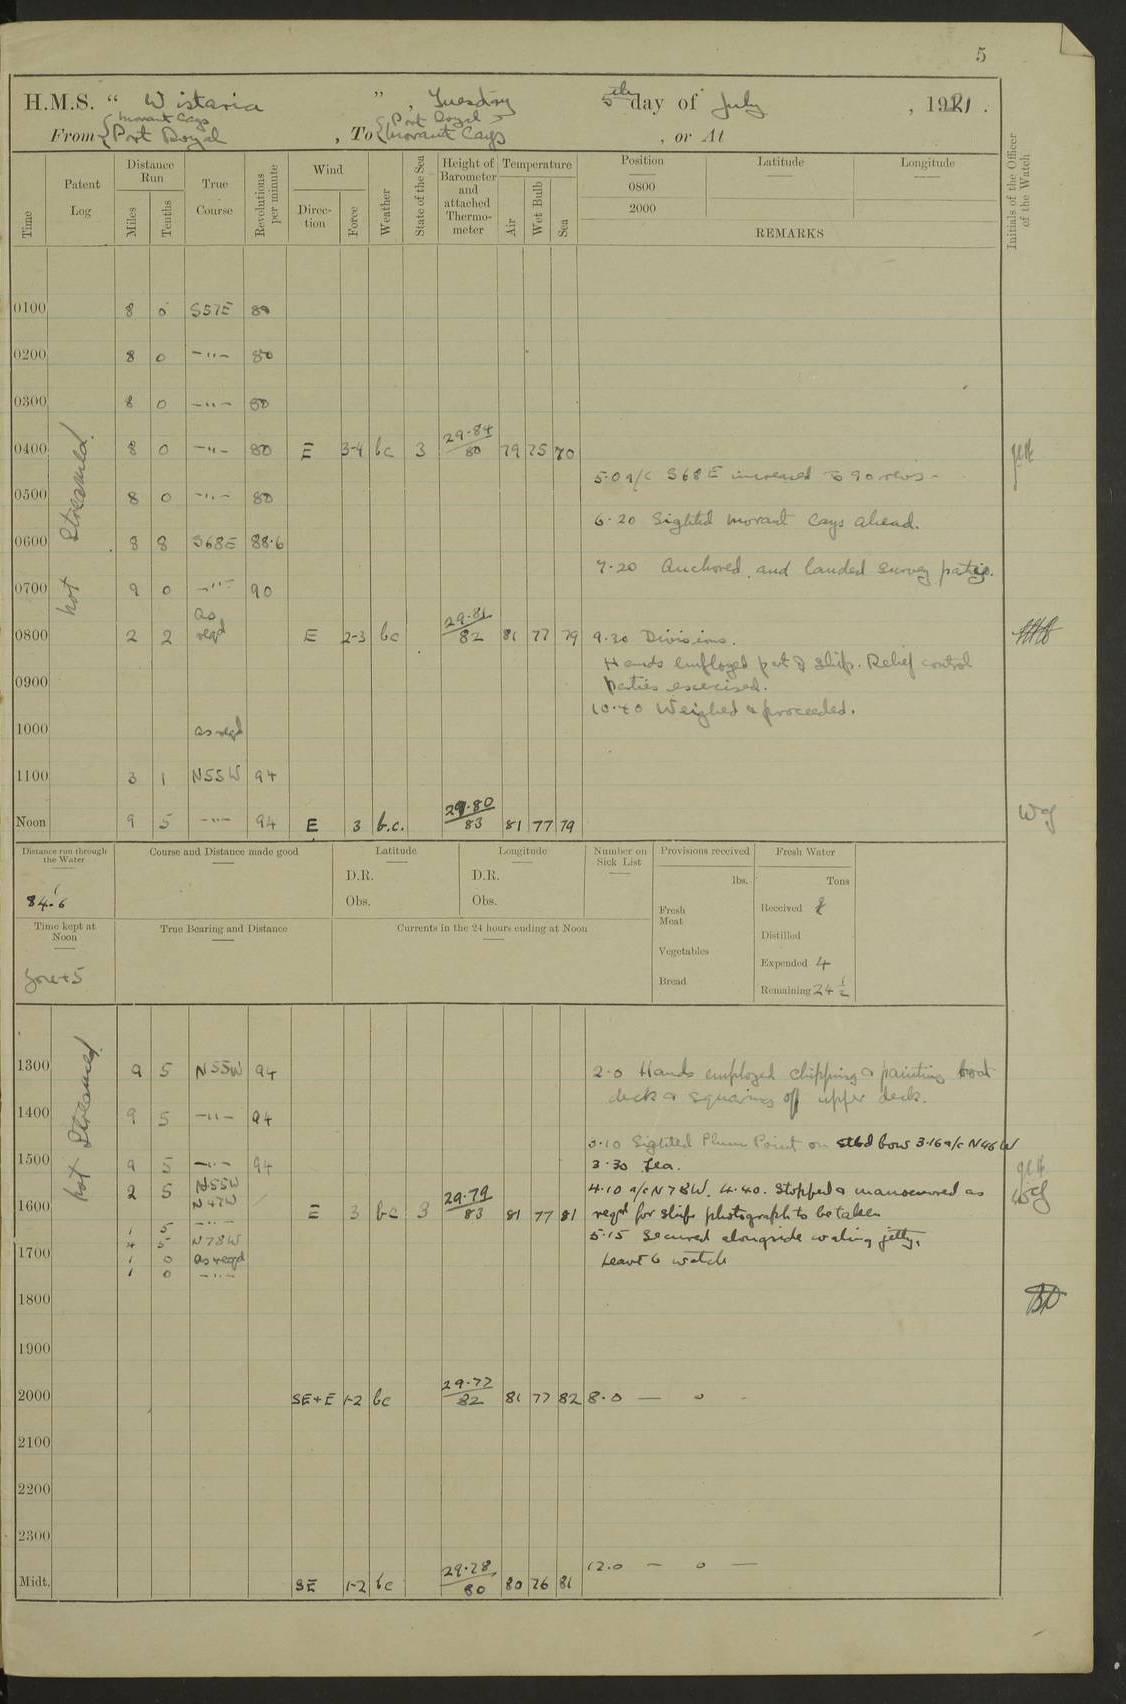 5
H.M.S. " Wistaria ", Tuesday 5th day of July, 1921.
From { Morant Cays Port Royal, To { Port Royal Morant Cays, or At
Time
Patent Log
Distance Run
Miles
Tenths
True Course
Revolutions per minute
Wind
Direction
Force
Weather
State of the Sea
Height of Barometer and attached Thermometer
Temperature
Air
Wet Bulb
Sea
Position
Latitude
Longitude
0800
2000
REMARKS
Initials of the Officer of the Watch
not streamed.
0100 8 0 S57E 80
0200 8 0 -"- 80
0300 8 0 -"- 80
0400 8 0 -"- 80 E 3-4 bc 3 29.84/80 79 75 70
5.0 a/c S68E increased to 90 revs-
0500 8 0 -"- 80
6.20 Sighted Morant Cays ahead.
0600 8 8 S68E 88.6
7.20 Anchored and landed survey party.
0700 9 0 -"- 90
0800 2 2 as reqd E 2-3 bc 29.81/82 81 77 79 9.30 Divisions.
Hands employed pt of ship. Relief control
0900 parties exercised.
10.40 Weighed & proceeded.
1000 as reqd
1100 3 1 N55W 94
Noon 9 5 -"- 94 E 3 b.c. 29.80/83 81 77 79 WG
Distance run through the Water
84.6
Course and Distance made good
Latitude
D.R.
Obs.
Longitude
D.R.
Obs.
Number on Sick List
Provisions received
lbs.
Fresh Meat
Vegetables
Bread
Fresh Water
Tons
Received
Distilled
Expended 4
Remaining 24 1/2
Time kept at Noon
Zone +5
True Bearing and Distance
Currents in the 24 hours ending at Noon
not streamed.
1300 9 5 N55W 94 2.0 Hands employed chipping & painting boat
deck & squaring off upper deck.
1400 9 5 -"- 94
3.10 Sighted Plum Point on stbd bow 3.16 a/c N46W
1500 9 5 -"- 94 3.30 Tea.
2 5 N55W 4.10 a/c N78W. 4.40. Stopped & manoeuvred as
N47W
1600 E 3 bc 3 29.79/83 81 77 81 reqd for ships photograph to be taken
1 5 -"-
4 5 N78W 5.15 Secured alongside coaling jetty.
1700 1 0 as reqd Leave to watch
1 0 -"-
1800
1900
2000 SE+E 1-2 bc 29.77/82 81 77 82 8.0 — 0 -
2100
2200
2300
12.0 — 0 —
Midt. SE 1-2 bc 29.78/80 80 76 81